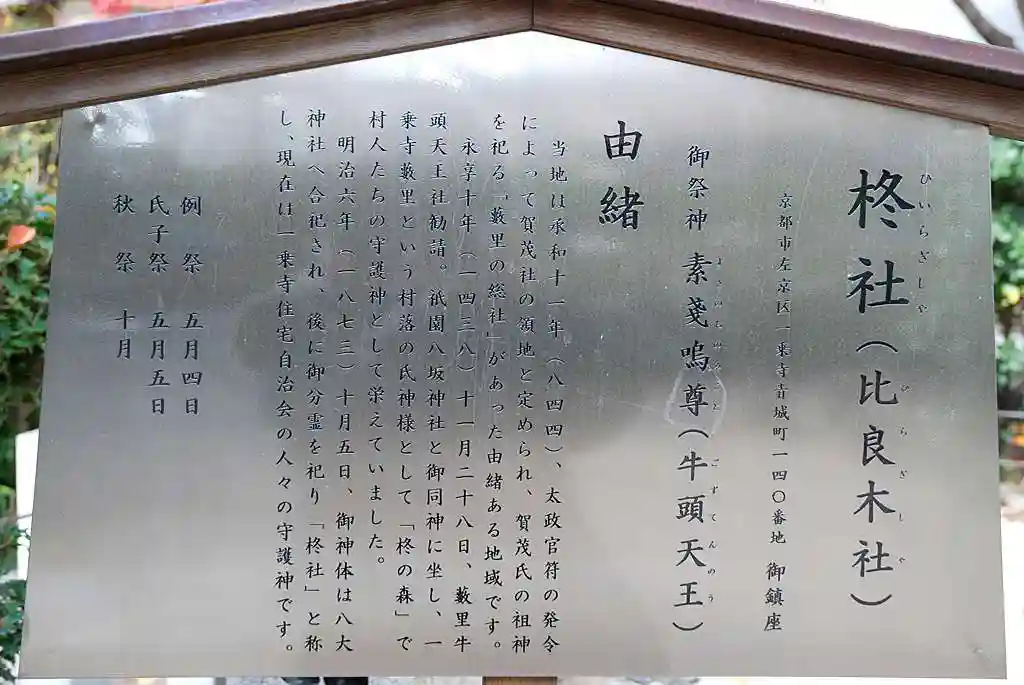 柊社(比良木社)
ひいらぎしゃ
ひらぎしゃ
京都市左京区一乗寺青城町一四〇番地 御鎮座
御祭神 素戔嗚尊(牛頭天王)
すさのおのみこと
ごずてんのう
由緒
当地は承和十一年(八四四)、太政官符の発令
によって賀茂社の領地と定められ、賀茂氏の祖神
を祀る「藪里の総社」があった由緒ある地域です。
永享十年(一四三八)十一月二十八日、藪里牛
頭天王社勧請。祇園八坂神社と御同神に坐し、一
乗寺藪里という村落の氏神様として「柊の森」で
村人たちの守護神として栄えていました。
明治六年(一八七三)十月五日、御神体は八大
神社へ合祀され、後に御分霊を祀り「柊社」と称
し、現在は一乗寺住宅自治会の人々の守護神です。
例祭 五月四日
氏子祭 五月五日
秋祭 十月